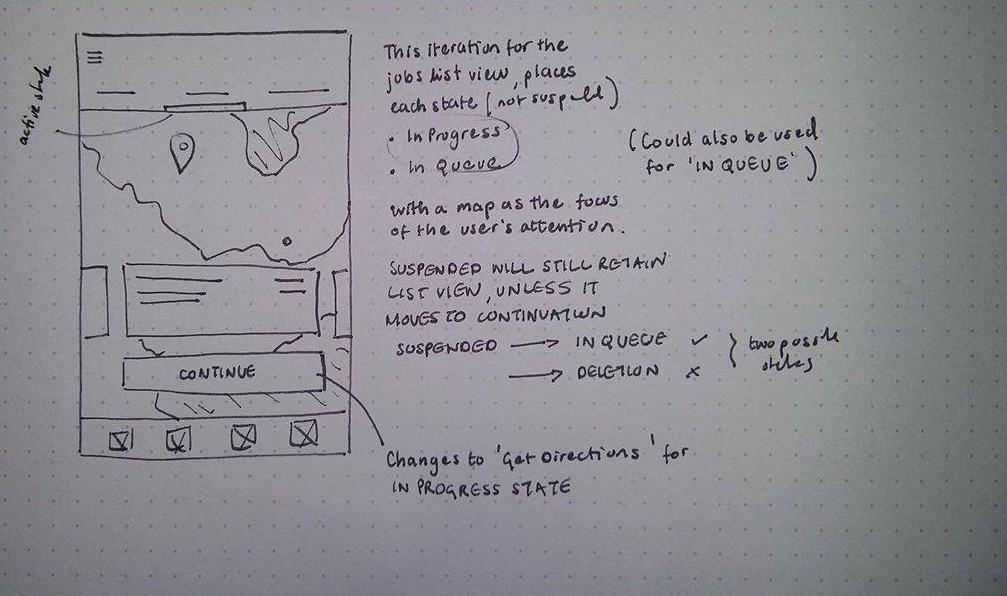 active state
This iteration for the
jobs list view, places
each state (not suspended)
• In Progress
• In Queue
(Could also be used
for 'IN QUEUE')
with a map as the focus
of the user's attention.
SUSPENDED WILL STILL RETAIN
LIST VIEW, UNLESS IT
MOVES TO CONTINUATION
SUSPENDED → IN QUEUE ✓
→ DELETION ×
} two possible
states
CONTINUE
Changes to 'Get Directions' for
IN PROGRESS STATE